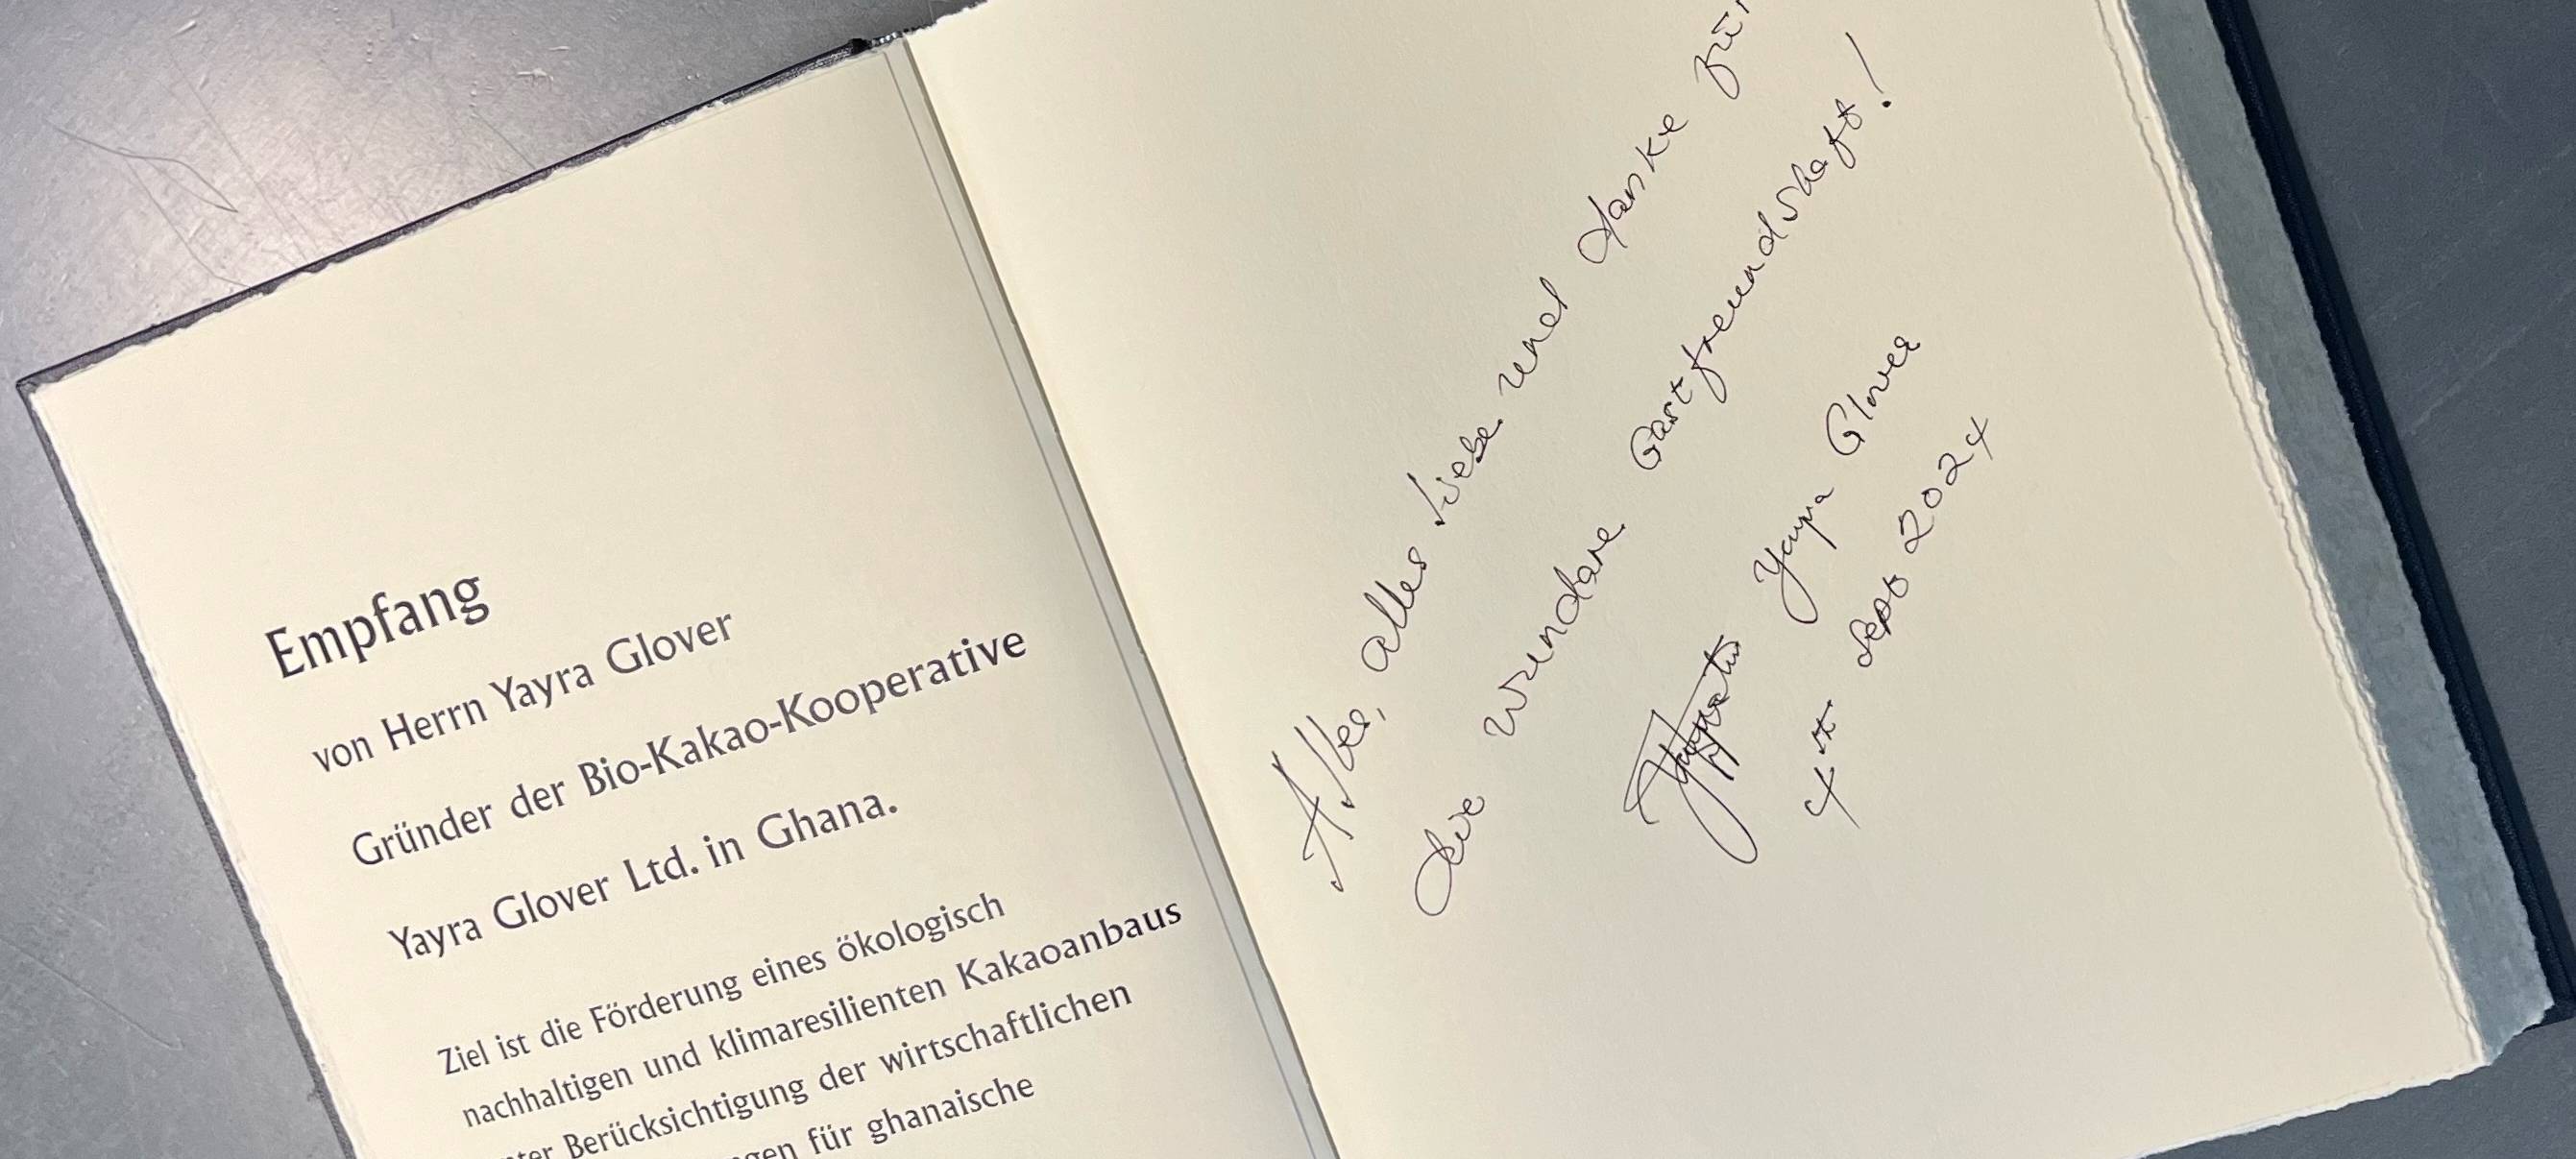 Empfang
von Herrn Yayra Glover
Gründer der Bio-Kakao-Kooperative
Yayra Glover Ltd. in Ghana.
Ziel ist die Förderung eines ökologisch
nachhaltigen und klimaresilienten Kakaoanbaus
Berücksichtigung der wirtschaftlichen
für ghanaische
alles Liebe und danke für
die Gastfreundschaft!
Yayra Glover
Sept 2024